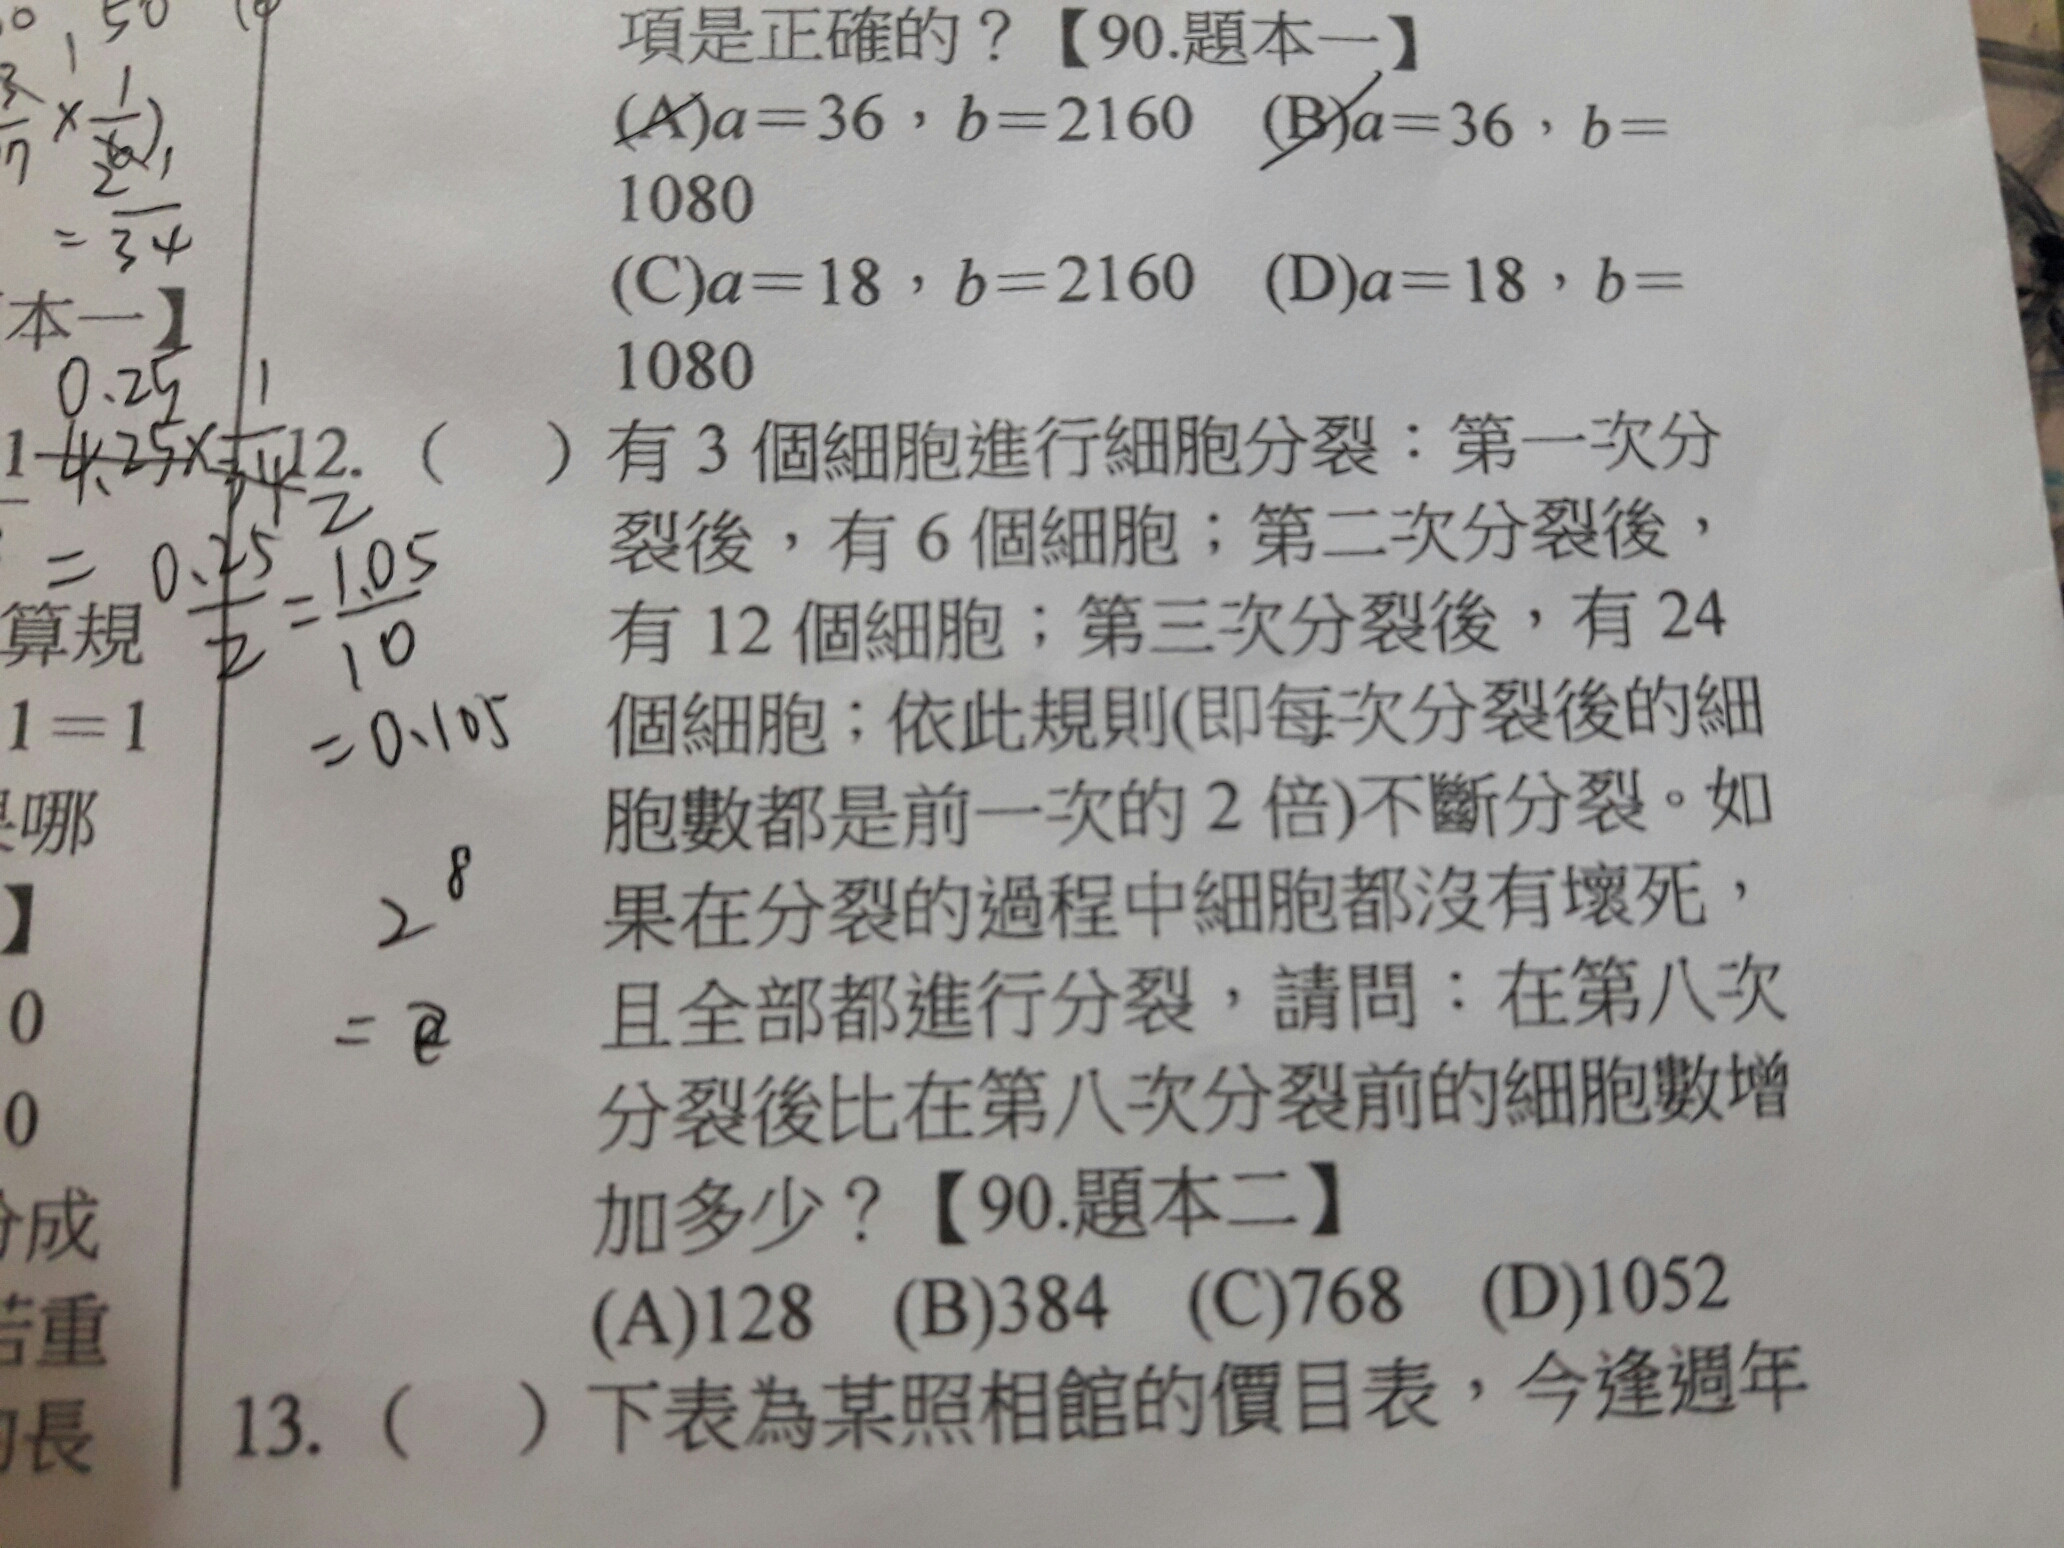 50
項是正確的？【90.題本一】
(A)a＝36，b＝2160 (B)a＝36，b＝
1080
(C)a＝18，b＝2160 (D)a＝18，b＝
1080
12. (　) 有 3 個細胞進行細胞分裂：第一次分
裂後，有 6 個細胞；第二次分裂後，
有 12 個細胞；第三次分裂後，有 24
個細胞；依此規則(即每次分裂後的細
胞數都是前一次的 2 倍)不斷分裂。如
果在分裂的過程中細胞都沒有壞死，
且全部都進行分裂，請問：在第八次
分裂後比在第八次分裂前的細胞數增
加多少？【90.題本二】
(A)128 (B)384 (C)768 (D)1052
13. (　) 下表為某照相館的價目表，今逢週年
= 1/34
本一】
0.25
4.25 × 1/34
2
= 0.25/2 = 1.05/10
= 0.105
算規
1＝1
哪
】
0
0
成
重
長
2^8
=